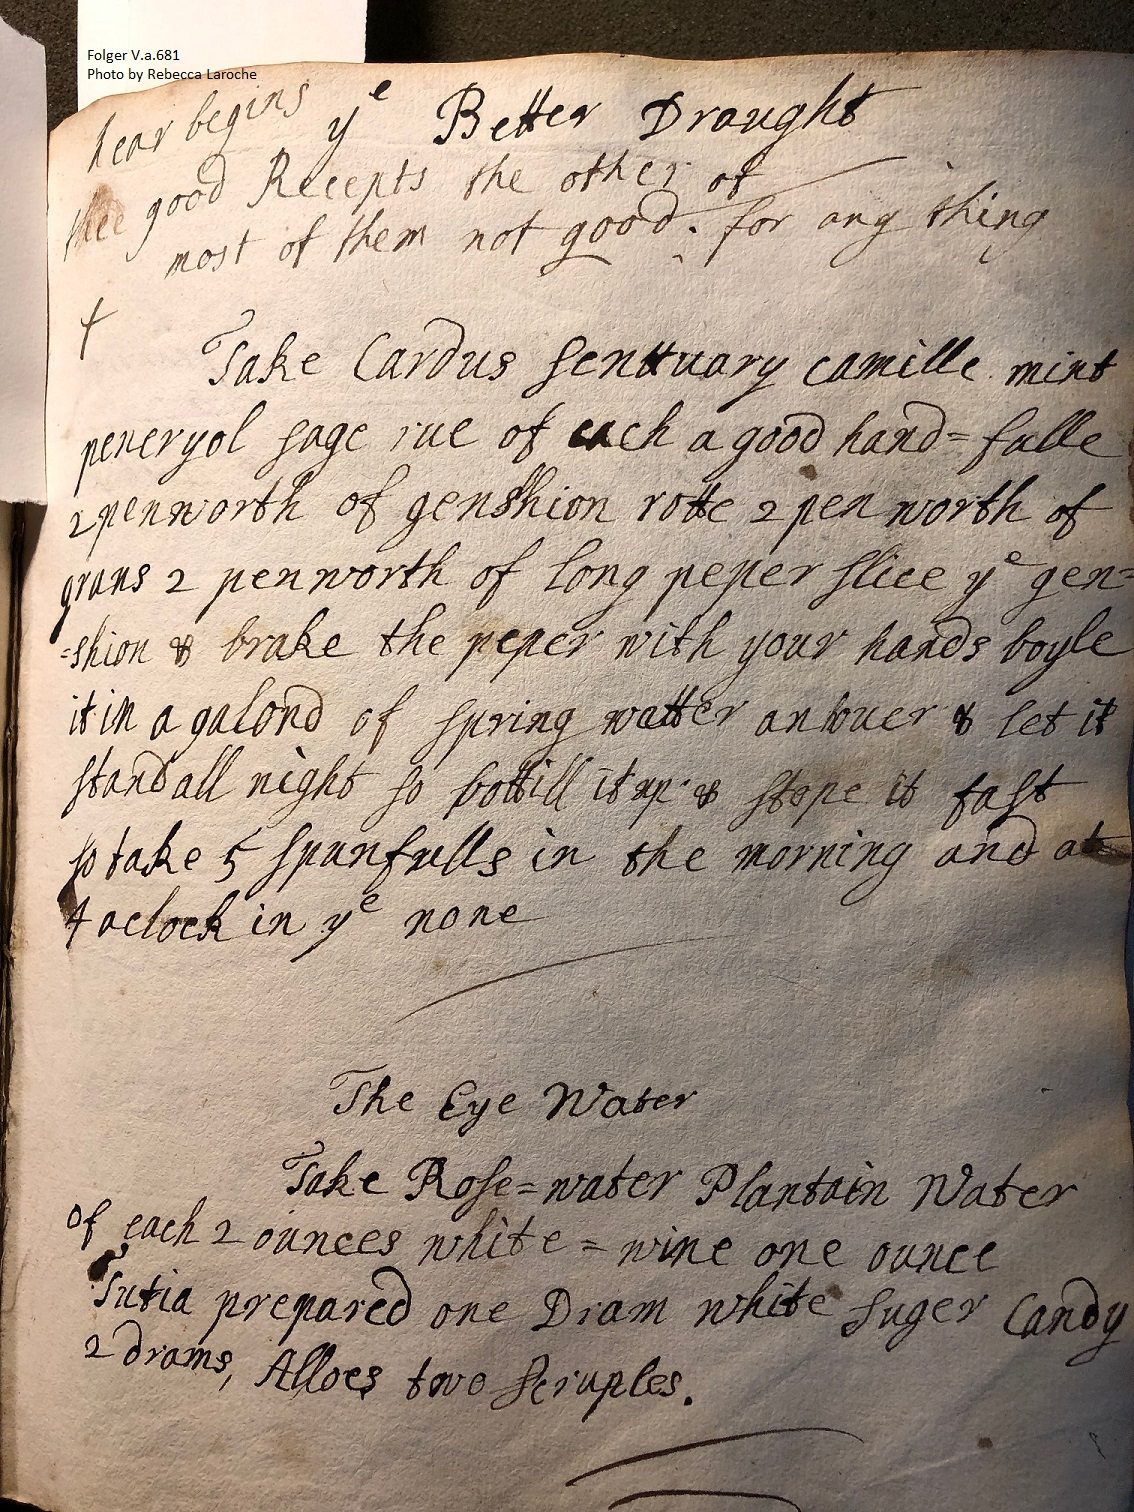 Folger V.a.681
Photo by Rebecca Laroche
hear begins
yᵉ Better Draught
good Recepts the other of
most of them not good. for any thing
Take Cardus senttuary camille mint
peneryol sage rue of each a good hand=fulle
2 penworth of genshion rotte 2 pen worth of
grans 2 penworth of long peper slice yᵉ gen=
=shion & brake the peper with your hands boyle
it in a galond of spring watter an houer & let it
stand all night so bottill it up & stope it fast
so take 5 spunfulls in the morning and at
4 oclock in yᵉ none
The Eye Water
Take Rose=water Plantain Water
of each 2 ounces white=wine one ounce
Tutia prepared one Dram white suger Candy
2 drams, Alloes two scruples.